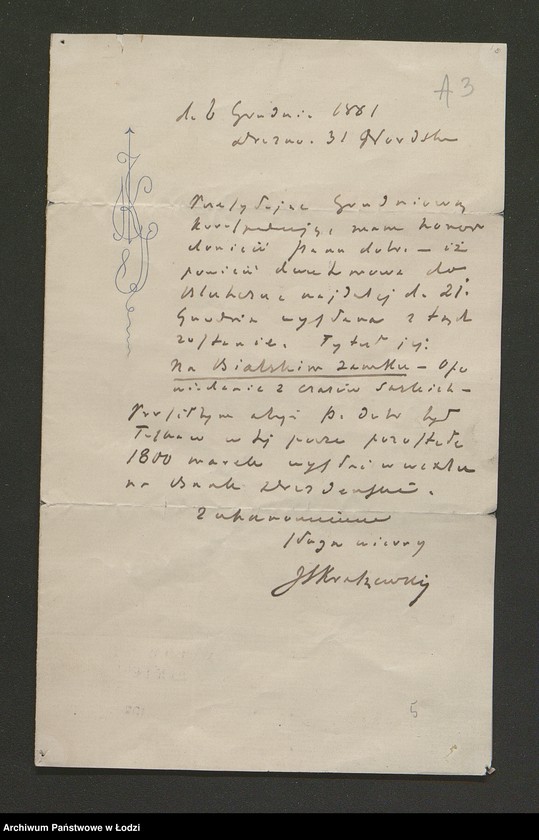 A3
d. 6 Grudnia 1881
Drezno. 31 Nordstr
Przesyłając Grudniową
korespondencję mam honor
donieść Panu dobr. – iż
powieść dwutomowa do
Bluszczu najdalej d. 21.
Grudnia wysłana z tąd
zostanie. Tytuł jej:
Na Bialskim zamku – Opo
wiadanie z czasów Saskich –
Prosiłbym abyś P. Dobr był
łaskaw w tej porze pozostałe
1800 marek wysłać w wexlu
na Bank Drezdeński.
Z uszanowaniem
sługa wierny
JIKraszewski
5
Archiwum Państwowe w Łodzi